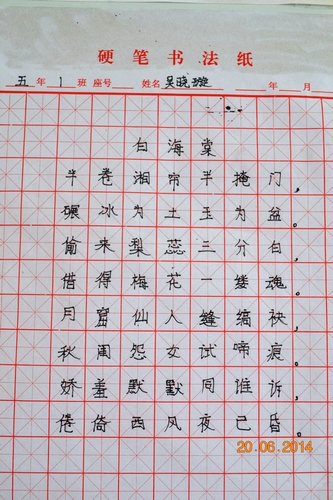 硬笔书法纸
五年1班 座号 姓名吴晓璇 年 月
白海棠
半卷湘帘半掩门,
碾冰为土玉为盆。
偷来梨蕊三分白,
借得梅花一缕魂。
月窟仙人缝缟袂,
秋闺怨女试啼痕。
娇羞默默同谁诉,
倦倚西风夜已昏。
20.06.2014